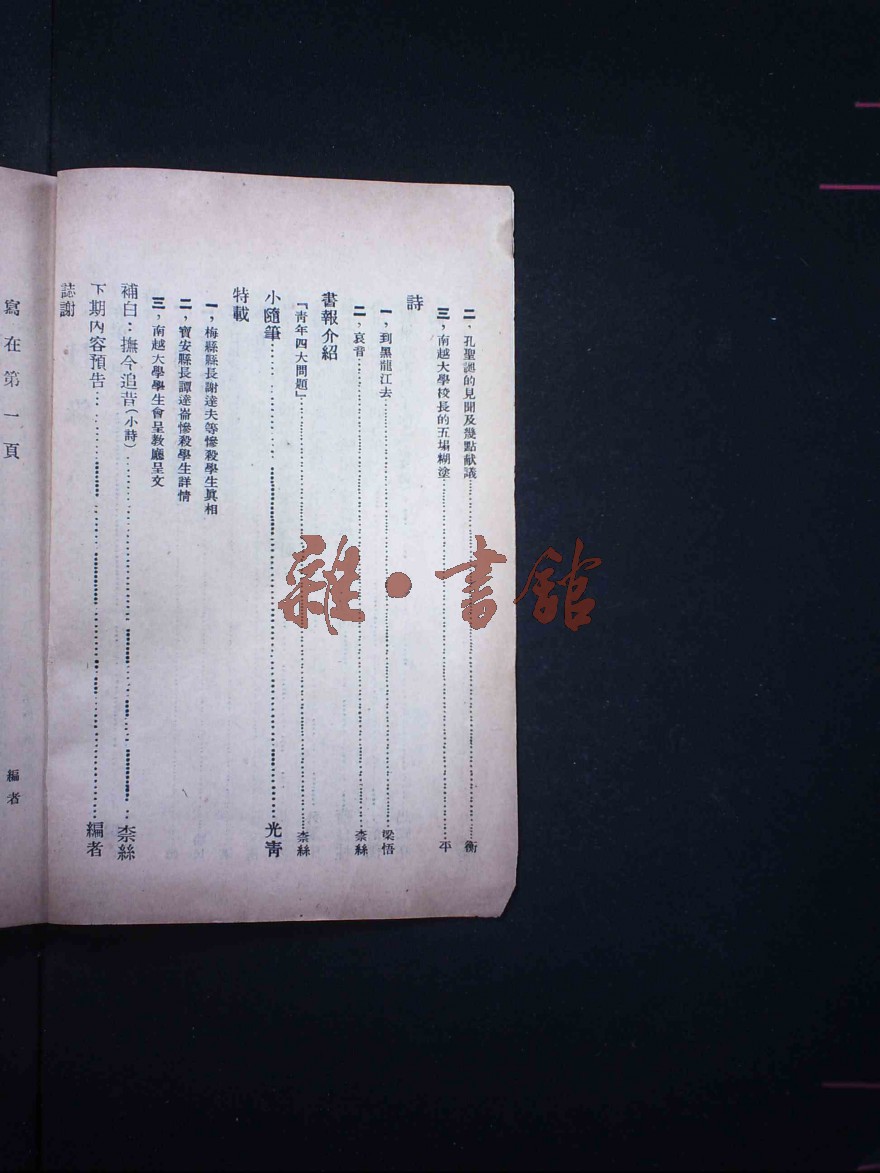 二．孔聖誕的見聞及幾點献議……衡
三，南越大學校長的五塲糊塗……平
詩
一，到黑龍江去……梁悟
二，哀音……柰絲
書報介紹
「靑年四大問題」……柰絲
小隨筆……光靑
特載
一，梅縣縣長謝達夫等慘殺學生眞相
二，寶安縣長譚達崙慘殺學生詳情
三，南越大學學生會呈敎廳呈文
補白：撫今追昔(小詩)……柰絲
下期內容預告……編者
誌謝
寫在第一頁
編者
雜·書館